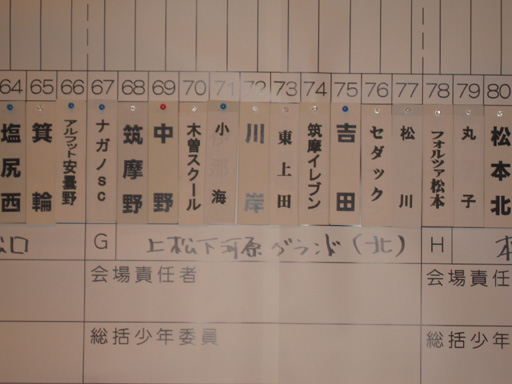 64 65 66 67 68 69 70 71 72 73 74 75 76 77 78 79 80
塩尻西
箕輪
アルフット安曇野
ナガノSC
筑摩野
中野
木曽スクール
小海
川岸
東上田
筑摩イレブン
吉田
セダック
松川
フォルツァ松本
丸子
松本北
G 上松下河原グランド(北) H
会場責任者 会場責任
総括少年委員 総括少年